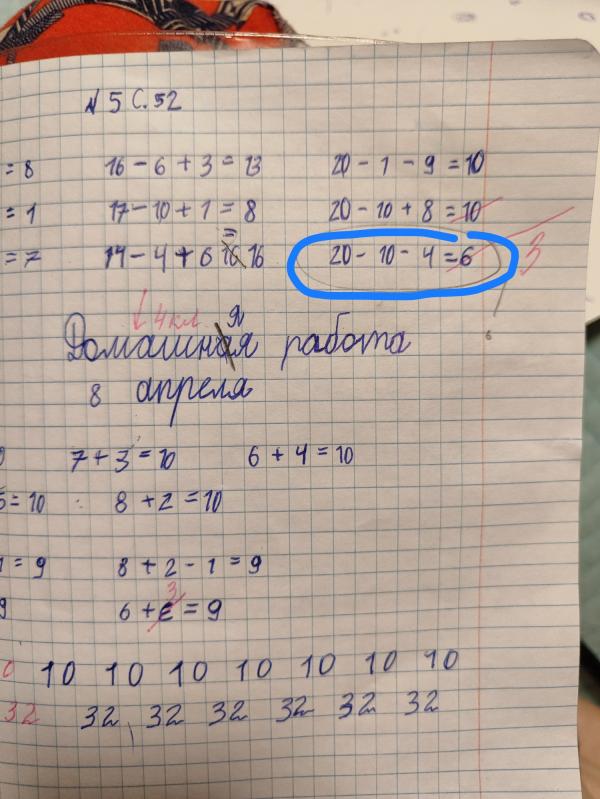 N 5 С. 52
= 8 16 - 6 + 3 = 13 20 - 1 - 9 = 10
= 1 17 - 10 + 1 = 8 20 - 10 + 8 = 10
= 7 14 - 4 + 6 = 16 16 20 - 10 - 4 = 6 3
↓ 4 кл
Домашняя работа
8 апреля
7 + 3 = 10 6 + 4 = 10
5 = 10 8 + 2 = 10
1 = 9 8 + 2 - 1 = 9
9 6 + 3 = 9
10 10 10 10 10 10 10
32 32 32 32 32 32 32